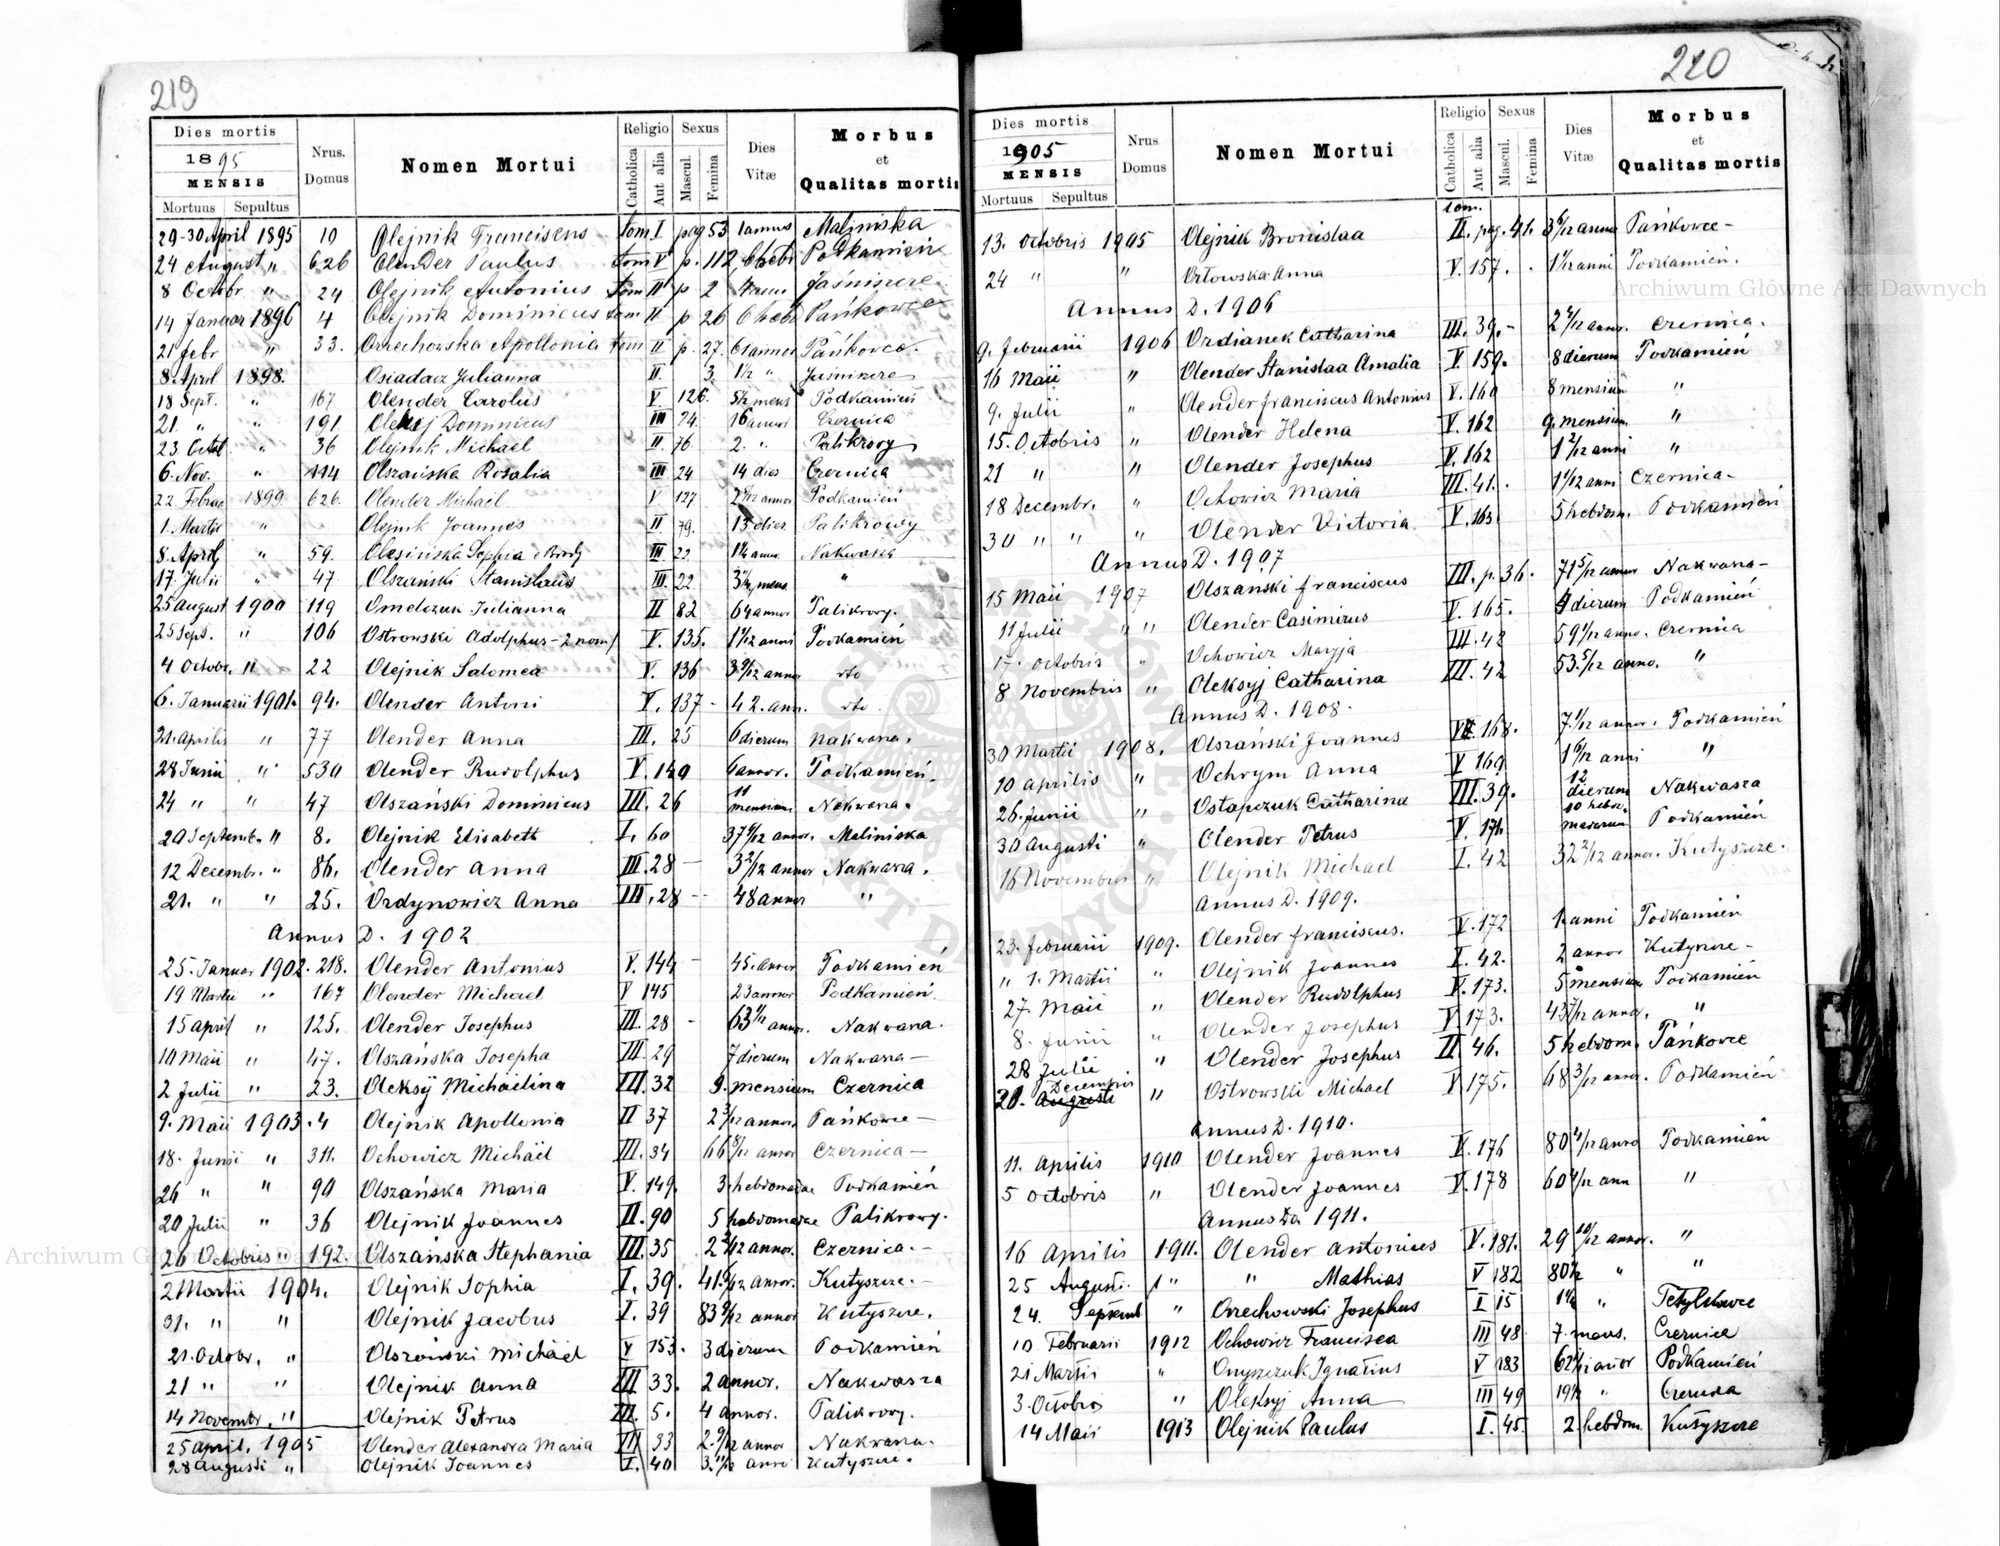 219
Dies mortis
1895
MENSIS
Mortuus Sepultus
Nrus. Domus
Nomen Mortui
Religio
Catholica
Aut alia
Sexus
Mascul.
Femina
Dies Vitæ
Morbus et Qualitas mortis
29-30 April 1895 10 Olejnik Franciscus tom I pag 53 1 annus Maliniska
24 August " 626 Olender Paulus tom V p. 112 Podkamień
8 Octobr " 24 Olejnik Antonius tom II p 2 Jaśniszcze
14 Januar 1896 4 Olejnik Dominicus tom II p 26 6 hebd Pańkowce
21 febr " 33. Orzechowska Apollonia tom II p. 27. 61 annos Pańkowce.
8 April 1898. Osiadacz Julianna II. 3. 1½ " Jaśniszcze
18 Sept. " 167 Olender Carolus V 126. 5½ mens Podkamień
21. " " 191. Oleksij Dominicus III 74. 16 annor Czernica
23. Octob " 36 Olejnik Michael II. 76. 2. " Palikrovy
6. Nov. " 114 Olszańska Rosalia III 24 14 dies Czernica
22 Februar 1899. 626. Olender Michael V 127 annor Podkamień
1. Martii " Olejnik Joannes II 79. 13 dier Palikrowy
8. April " 59. Olesińska Sophia e Brody III 22. Nakwasza
17. Julii " 47 Olszański Stanislaus III. 22 mens "
25 August 1900 119 Omelczuk Julianna II 82 64 annor Palikrovy.
25 Sept. " 106 Ostrowski Adolphus - 2 nom/ V. 135. anni Podkamień
4 Octobr. " 22 Olejnik Salomea V. 136 3 9/12 annor dto
6. Januarii 1901. 94. Olender Antoni V. 137 - 42. ann. dto.
21. Aprilis " 77 Olender Anna III. 25 6 dierum Nakwasza.
28 Junii " 530 Olender Rudolphus V. 140 6 annor. Podkamień.
24 " " 47 Olszański Dominicus III. 26 11 mensium Nakwasza.
20 Septembr. " 8. Olejnik Elisabeth I. 60 annor. Maliniska
12 Decembr. " 86. Olender Anna III. 28 - 3 2/12 annor Nakwasza.
21. " " 25. Ordynowicz Anna III. 28 - - 48 annor "
Annus D. 1902
25. Januar 1902. 218. Olender Antonius V. 144 - 45. annor Podkamień
19 Martii " 167 Olender Michael V 145 23 annor Podkamień.
15 April " 125. Olender Josephus III. 28 - annor. Nakwasza.
10 Maii " 47. Olszańska Josepha III. 29 7 dierum Nakwasza -
2 Julii " 23. Oleksÿ Michäelina III. 32 9. mensium Czernica
9. Maii 1903. 4 Olejnik Apollonia II 37 2 3/12 annor. Pańkowce -
18. Junii " 311. Ochowicz Michäel III. 34 66 8/12 annor Czernica -
26 " " 90 Olszańska Maria V. 149. 3. hebdomadae Podkamień
20 Julii " 36 Olejnik Joannes II. 90 5 hebdomadae Palikrovy.
26 Octobris " 192. Olszańska Stephania III. 35 annor. Czernica. -
2 Martii 1904. Olejnik Sophia I. 39. annor. Kutyszcze. -
31. " " Olejnik Jacobus I. 39 annor Kutyszcze.
21. Octobr. " Olszański Michäel V 153. 3 dierum Podkamień
21 " " Olejnik Anna III 33. 2 annor. Nakwasza
14 Novembr. " Olejnik Petrus III. 5. 4 annor. Palikrovy.
25 April. 1905 Olender Alexandra Maria III 33 annor Nakwasza.
28 Augusti " Olejnik Joannes I. 40 anni Kutyszcze.
220
Dies mortis
1905
MENSIS
Mortuus Sepultus
Nrus. Domus
Nomen Mortui
Religio
Catholica
Aut alia
Sexus
Mascul.
Femina
Dies Vitæ
Morbus et Qualitas mortis
13. Octobris 1905 Olejnik Bronislaa tom. II. pag. 41. 3 6/12 annor Pańkowce -
24 " " Orłowska Anna V. 157. anni Podkamień.
Annus D. 1906
9. Februarii 1906 Ordianek Catharina III. 39. - annor. Czernica.
16 Maii " Olender Stanislaa Amalia V. 159. 8 dierum Podkamień
9. Julii " Olender Franciscus Antonius V. 160 8 mensium "
15. Octobris " Olender Helena V. 162 9. mensium "
21 " " Olender Josephus V. 162 1 2/12 anni "
18 Decembr. " Ochowicz Maria III. 41. anni Czernica -
30 " " " Olender Victoria V. 163. 5 hebdom. Podkamień
Annus D. 1907
15 Maii 1907 Olszański Franciscus III. p. 36. 71 5/12 annor Nakwasza -
11 Julii " " Olender Casimirus V. 165. 4 dierum Podkamień
17. Octobris " Ochowicz Maryja III. 42 annor. Czernica
8 Novembris " Oleksyj Catharina III. 42 53. 5/12 anno. "
Annus D. 1908.
30 Martii 1908. Olszański Joannes V. 168. 7. 1/12 annor. Podkamień
10 Aprilis " Ochrym Anna V 169 1 6/12 anni "
26. Junii " Ostapczuk Catharina III. 39. 12 dierum Nakwasza
30 Augusti " Olender Petrus V. 171. 10 hebdomadarum Podkamień
16 Novembris " Olejnik Michael I. 42 32 2/12 annor. Kutyszcze.
Annus D. 1909.
23. Februarii 1909. Olender Franciscus. V. 172 1. anni Podkamień
" 1. Martii " Olejnik Joannes I. 42. 2 annor Kutyszcze -
27. Maii " Olender Rudolphus V. 173. 5 mensium Podkamień
8. Junii " Olender Josephus V. 173. 43 7/12 annor. "
28 Julii " Olender Josephus II. 46. 5 hebdom. Pańkovce
20. Augusti Decembris " Ostrowski Michael V. 175. 68 3/12 annor. Podkamień
Annus D. 1910.
11. Aprilis 1910 Olender Joannes V. 176 80 4/12 anno Podkamień
5 Octobris " Olender Joannes V. 178 ann "
Annus Di 1911.
16 Aprilis 1911. Olender Antonius V. 181. 29 10/12 annor. "
25 Augusti. " " Mathias V 182 80½ " "
24. Septemb " Orzechowski Josephus I 15 " Tetylkowce
10 Februarii 1912 Ochowicz Francisca III 48. 7. mens. Czernica
21 Martii " Onyszczuk Ignatius V 183 Podkamień
3. Octobris " Oleksyj Anna III 49 19½ " Czernica
14 Maii 1913 Olejnik Paulus I. 45. 2. hebdom. Kutyszcze
Archiwum Główne Akt Dawnych
Archiwum Główne Akt Dawnych